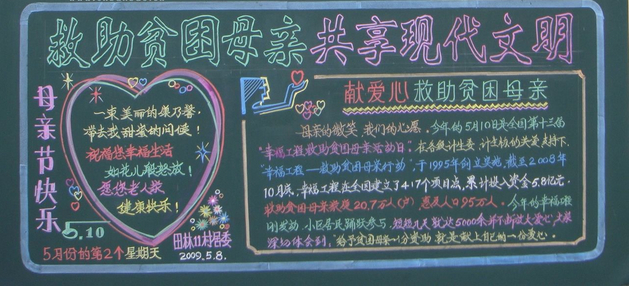 救助贫困母亲 共享现代文明
母亲节快乐
一束美丽的康乃馨,
带去我甜蜜的问候!
祝福您幸福生活
如花儿般绽放!
愿您老人家
健康快乐!
5.10
5月份的第2个星期天
田林11村居委
2009.5.8.
献爱心救助贫困母亲
母亲的微笑 我们的心愿。今年的5月10日是全国第十三届
"幸福工程救助贫困母亲活动日"。在各级计生委、计生协的关爱支持下,
"幸福工程——救助贫困母亲行动",于1995年创立实施,截至2008年
10月底,幸福工程在全国建立了417个项目点,累计投入资金5.8亿元,
救助贫困母亲家庭20.7万人(户),惠及人口95万人。今年的幸福工程
刚发动,小区居民踊跃参与,短短几天就达5000余
深切体会到,"给予贫困母亲一分赞助,就是献上自己的一份爱心。